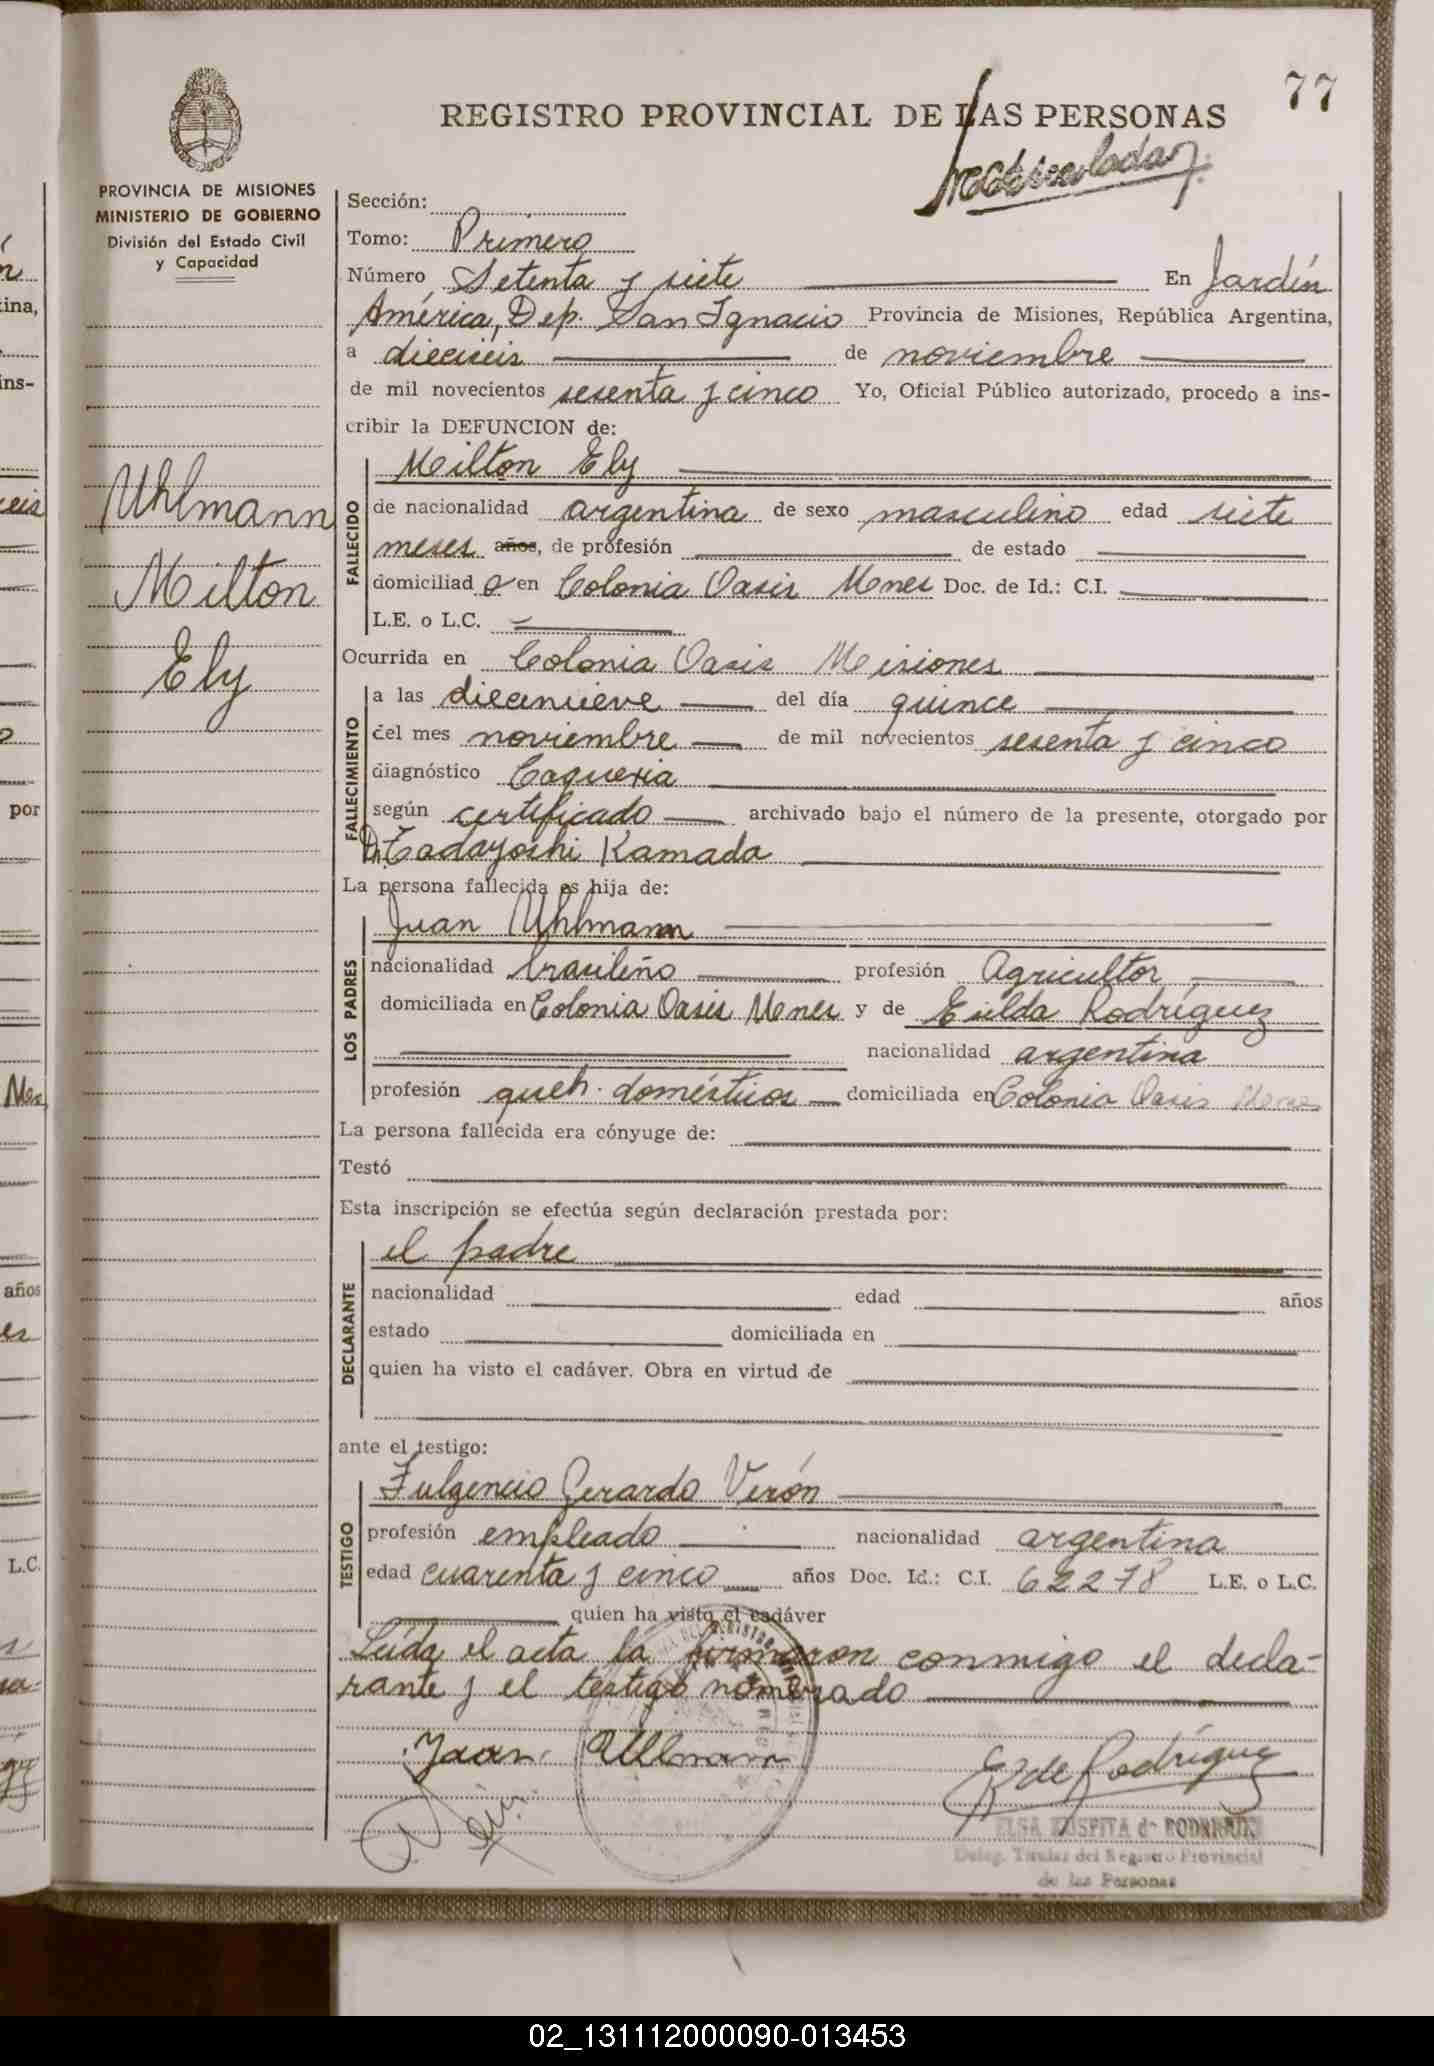 77
REGISTRO PROVINCIAL DE LAS PERSONAS
PROVINCIA DE MISIONES
MINISTERIO DE GOBIERNO
División del Estado Civil
y Capacidad
Uhlmann
Milton
Ely
Sección:
Tomo: Primero
Número Setenta y siete En Jardín
América, Dep. San Ignacio Provincia de Misiones, República Argentina,
a dieciseis de noviembre
de mil novecientos sesenta y cinco Yo, Oficial Público autorizado, procedo a ins-
cribir la DEFUNCION de:
FALLECIDO
Milton Ely
de nacionalidad argentina de sexo masculino edad siete
meses años, de profesión de estado
domiciliad o en Colonia Oasis Mnes Doc. de Id.: C.I.
L.E. o L.C.
Ocurrida en Colonia Oasis Misiones
FALLECIMIENTO
a las diecinueve del día quince
del mes noviembre de mil novecientos sesenta y cinco
diagnóstico Caquexia
según certificado archivado bajo el número de la presente, otorgado por
Dr. Tadayoshi Kamada
La persona fallecida es hija de:
LOS PADRES
Juan Uhlmann
nacionalidad brasileño profesión Agricultor
domiciliada en Colonia Oasis Mnes y de Eilda Rodríguez
nacionalidad argentina
profesión queh. domésticos domiciliada en Colonia Oasis Mnes
La persona fallecida era cónyuge de:
Testó
Esta inscripción se efectúa según declaración prestada por:
DECLARANTE
el padre
nacionalidad edad años
estado domiciliada en
quien ha visto el cadáver. Obra en virtud de
ante el testigo:
TESTIGO
Fulgencio Gerardo Verón
profesión empleado nacionalidad argentina
edad cuarenta y cinco años Doc. Id.: C.I. 62278 L.E. o L.C.
quien ha visto el cadáver
Leída el acta la firmaron conmigo el decla-
rante y el testigo nombrado
Juan Ullmann
E. de Rodríguez
ELSA de RODRIGUEZ
Deleg. Titular del Registro Provincial
de las Personas
02_131112000090-013453